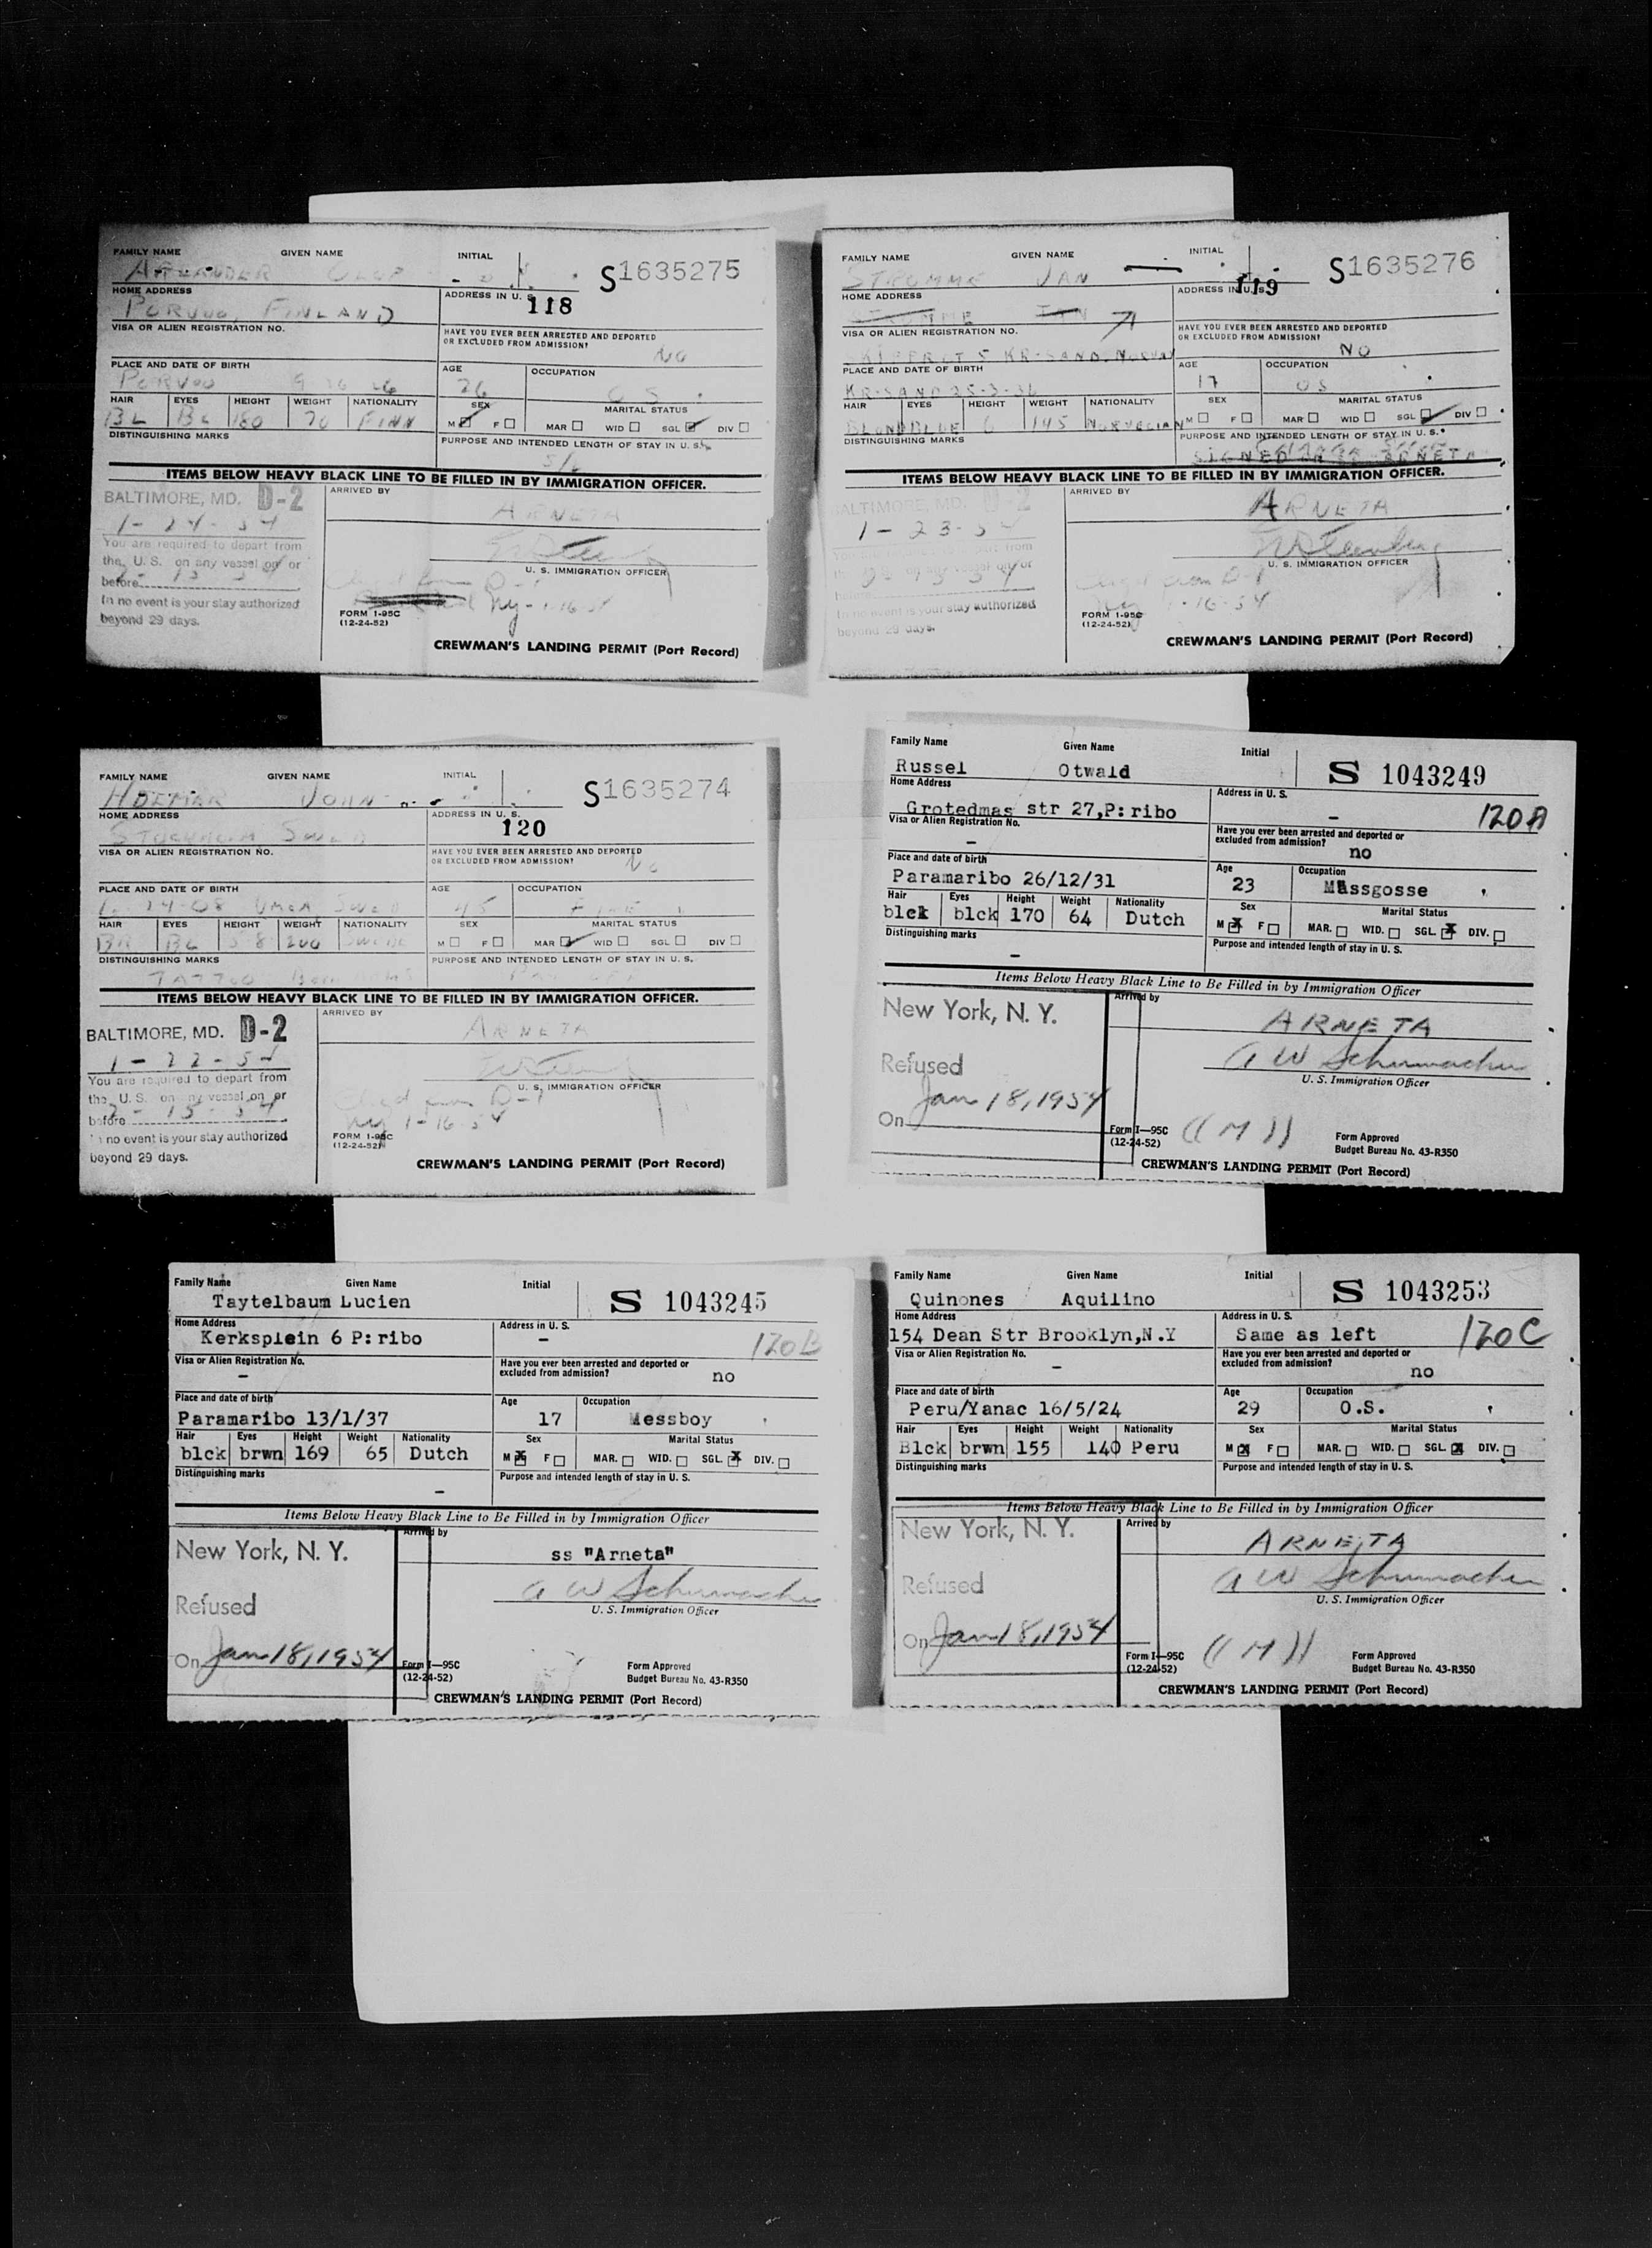 FAMILY NAME GIVEN NAME INITIAL
S1635275
HOME ADDRESS ADDRESS IN U. S.
118
PORVOO, FINLAND
VISA OR ALIEN REGISTRATION NO.
HAVE YOU EVER BEEN ARRESTED AND DEPORTED
OR EXCLUDED FROM ADMISSION?
No
PLACE AND DATE OF BIRTH AGE OCCUPATION
PORVOO 26 OS
HAIR EYES HEIGHT WEIGHT NATIONALITY SEX MARITAL STATUS
BL BL 180 70 FINN M F MAR WID SGL DIV
DISTINGUISHING MARKS PURPOSE AND INTENDED LENGTH OF STAY IN U. S.
ITEMS BELOW HEAVY BLACK LINE TO BE FILLED IN BY IMMIGRATION OFFICER.
BALTIMORE, MD. D-2
ARRIVED BY
ARNETA
1-24-54
You are required to depart from
the U. S. on any vessel on or
before
U. S. IMMIGRATION OFFICER
In no event is your stay authorized
beyond 29 days.
Ny-1-16-54
FORM I-95C
(12-24-52)
CREWMAN'S LANDING PERMIT (Port Record)
FAMILY NAME GIVEN NAME INITIAL
STROMME JAN
S1635276
HOME ADDRESS ADDRESS IN U. S.
119
VISA OR ALIEN REGISTRATION NO.
HAVE YOU EVER BEEN ARRESTED AND DEPORTED
OR EXCLUDED FROM ADMISSION?
NO
KR-SAND, NORWAY
PLACE AND DATE OF BIRTH AGE OCCUPATION
KR-SAND 25-3-36 17 OS
HAIR EYES HEIGHT WEIGHT NATIONALITY SEX MARITAL STATUS
BLOND BLUE 6 145 NORVEGIAN M F MAR WID SGL DIV
DISTINGUISHING MARKS PURPOSE AND INTENDED LENGTH OF STAY IN U. S.
SIGNED ARNETA
ITEMS BELOW HEAVY BLACK LINE TO BE FILLED IN BY IMMIGRATION OFFICER.
BALTIMORE, MD. D-2
ARRIVED BY
ARNETA
1-23-54
U. S. IMMIGRATION OFFICER
In no event is your stay authorized
beyond 29 days.
1-16-54
FORM I-95C
(12-24-52)
CREWMAN'S LANDING PERMIT (Port Record)
FAMILY NAME GIVEN NAME INITIAL
JOHN
S1635274
HOME ADDRESS ADDRESS IN U. S.
120
STOCKHOLM SWED
VISA OR ALIEN REGISTRATION NO.
HAVE YOU EVER BEEN ARRESTED AND DEPORTED
OR EXCLUDED FROM ADMISSION?
No
PLACE AND DATE OF BIRTH AGE OCCUPATION
UMEA SWED 45
HAIR EYES HEIGHT WEIGHT NATIONALITY SEX MARITAL STATUS
BR BL 5 8 200 SWEDE M F MAR WID SGL DIV
DISTINGUISHING MARKS PURPOSE AND INTENDED LENGTH OF STAY IN U. S.
TATTOO
ITEMS BELOW HEAVY BLACK LINE TO BE FILLED IN BY IMMIGRATION OFFICER.
BALTIMORE, MD. D-2
ARRIVED BY
ARNETA
1-22-54
You are required to depart from
the U. S. on any vessel on or
before 2-15-54
U. S. IMMIGRATION OFFICER
In no event is your stay authorized
beyond 29 days.
Ny 1-16-54
FORM I-95C
(12-24-52)
CREWMAN'S LANDING PERMIT (Port Record)
Family Name Given Name Initial
Russel Otwald
S 1043249
Home Address Address in U. S.
Grotedmas str 27,P:ribo - 120A
Visa or Alien Registration No.
-
Have you ever been arrested and deported or
excluded from admission?
no
Place and date of birth Age Occupation
Paramaribo 26/12/31 23 Massgosse
Hair Eyes Height Weight Nationality Sex Marital Status
blck blck 170 64 Dutch M X F MAR. WID. SGL. X DIV.
Distinguishing marks Purpose and intended length of stay in U. S.
-
Items Below Heavy Black Line to Be Filled in by Immigration Officer
New York, N. Y.
Arrived by
ARNETA
Refused
A W Schumacher
U. S. Immigration Officer
On Jan 18, 1954
Form I—95C
(12-24-52)
((M))
Form Approved
Budget Bureau No. 43-R350
CREWMAN'S LANDING PERMIT (Port Record)
Family Name Given Name Initial
Taytelbaum Lucien
S 1043245
Home Address Address in U. S.
Kerksplein 6 P:ribo - 120B
Visa or Alien Registration No.
-
Have you ever been arrested and deported or
excluded from admission?
no
Place and date of birth Age Occupation
Paramaribo 13/1/37 17 Messboy
Hair Eyes Height Weight Nationality Sex Marital Status
blck brwn 169 65 Dutch M X F MAR. WID. SGL. X DIV.
Distinguishing marks Purpose and intended length of stay in U. S.
-
Items Below Heavy Black Line to Be Filled in by Immigration Officer
New York, N. Y.
Arrived by
ss "Arneta"
Refused
A W Schumacher
U. S. Immigration Officer
On Jan 18, 1954
Form I—95C
(12-24-52)
Form Approved
Budget Bureau No. 43-R350
CREWMAN'S LANDING PERMIT (Port Record)
Family Name Given Name Initial
Quinones Aquilino
S 1043253
Home Address Address in U. S.
154 Dean Str Brooklyn,N.Y Same as left 120C
Visa or Alien Registration No.
-
Have you ever been arrested and deported or
excluded from admission?
no
Place and date of birth Age Occupation
Peru/Yanac 16/5/24 29 O.S.
Hair Eyes Height Weight Nationality Sex Marital Status
Blck brwn 155 140 Peru M X F MAR. WID. SGL. X DIV.
Distinguishing marks Purpose and intended length of stay in U. S.
Items Below Heavy Black Line to Be Filled in by Immigration Officer
New York, N. Y.
Arrived by
ARNETA
Refused
A W Schumacher
U. S. Immigration Officer
On Jan 18, 1954
Form I—95C
(12-24-52)
((M))
Form Approved
Budget Bureau No. 43-R350
CREWMAN'S LANDING PERMIT (Port Record)